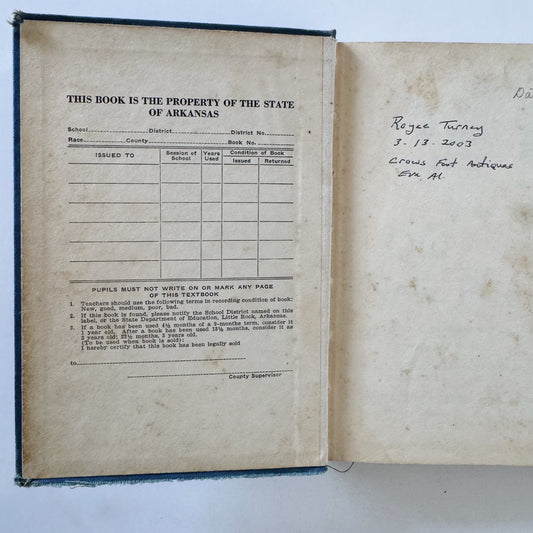 THIS BOOK IS THE PROPERTY OF THE STATE
OF ARKANSAS
School District District No.
Race County Book No.
ISSUED TO
Session of School
Years Used
Condition of Book
Issued Returned
PUPILS MUST NOT WRITE ON OR MARK ANY PAGE
OF THIS TEXTBOOK
1. Teachers should use the following terms in recording condition of book:
New, good, medium, poor, bad.
2. If this book is found, please notify the School District named on this
label, or the State Department of Education, Little Rock, Arkansas.
3. If a book has been used 4½ months of a 9-months term, consider it
1 year old. After a book has been used 13½ months, consider it as
2 years old; 22½ months, 3 years old.
(To be used when book is sold):
I hereby certify that this book has been legally sold
to
County Supervisor
Turney
3-13-2003
Crows Foot Antiques